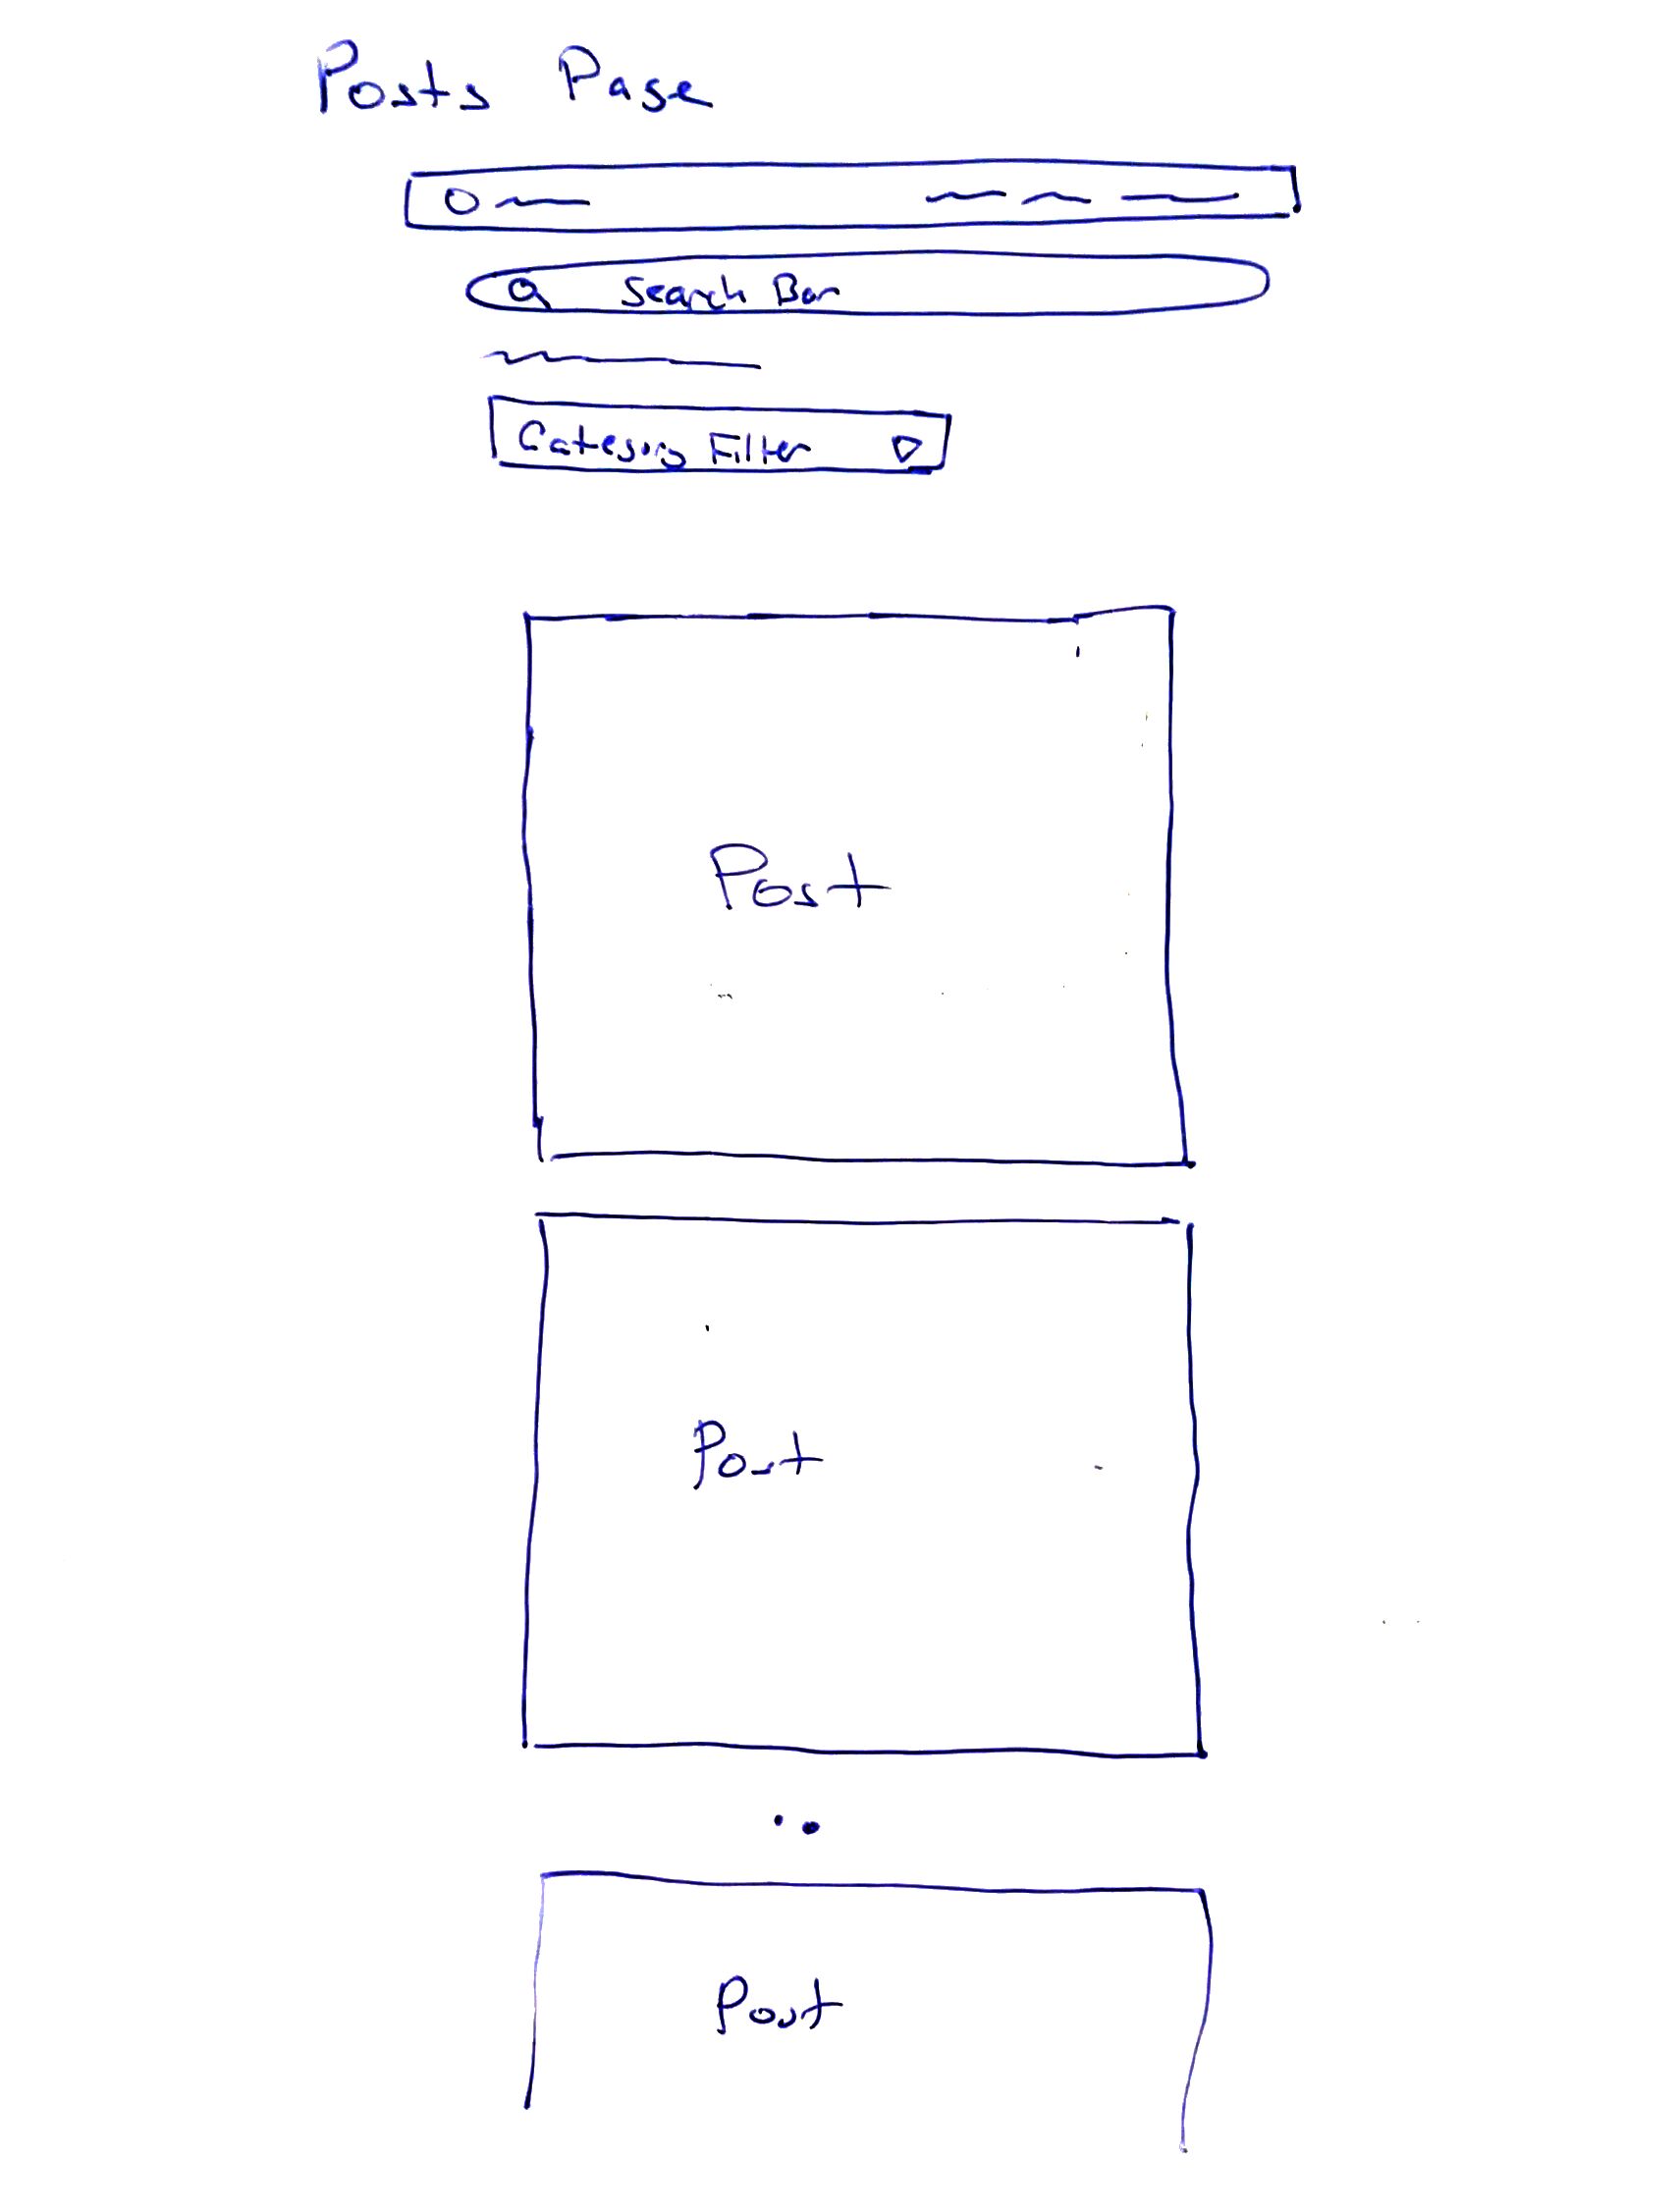 Posts Page
Search Bar
Category Filter
Post
Post
Post